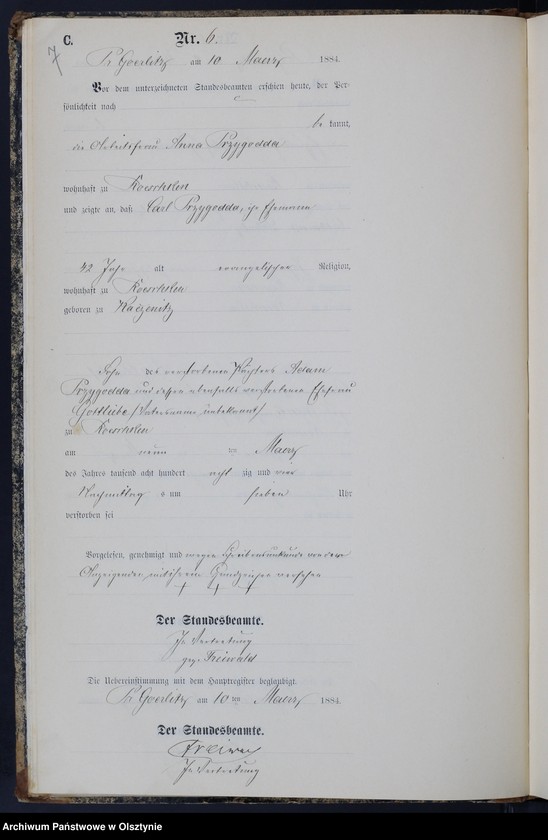 7
C. Nr. 6.
Pr. Goerlitz am 10 Maerz 1884.
Vor dem unterzeichneten Standesbeamten erschien heute, der Per-
sönlichkeit nach
be kannt,
die Arbeitsfrau Anna Przygodda
wohnhaft zu Koeschklen
und zeigte an, daß Carl Przygodda, ihr Ehemann
42 Jahr alt evangelischer Religion,
wohnhaft zu Koeschklen
geboren zu
Sohn des verstorbenen Adam
Przygodda und dessen ebenfalls verstorbenen Ehefrau
Gottliebe (Vatersname unbekannt)
zu Koeschklen
am neun ten Maerz
des Jahres tausend acht hundert acht zig und vier
Nachmittag s um sieben Uhr
verstorben sei
Vorgelesen, genehmigt und wegen Schreibensunkunde von dem
Anzeigenden mit ihrem Handzeichen versehen
+ + +
Der Standesbeamte.
In Vertretung
gez. Freiwald
Die Uebereinstimmung mit dem Hauptregister beglaubigt.
Pr. Goerlitz am 10 ten Maerz 1884.
Der Standesbeamte.
In Vertretung
Archiwum Państwowe w Olsztynie